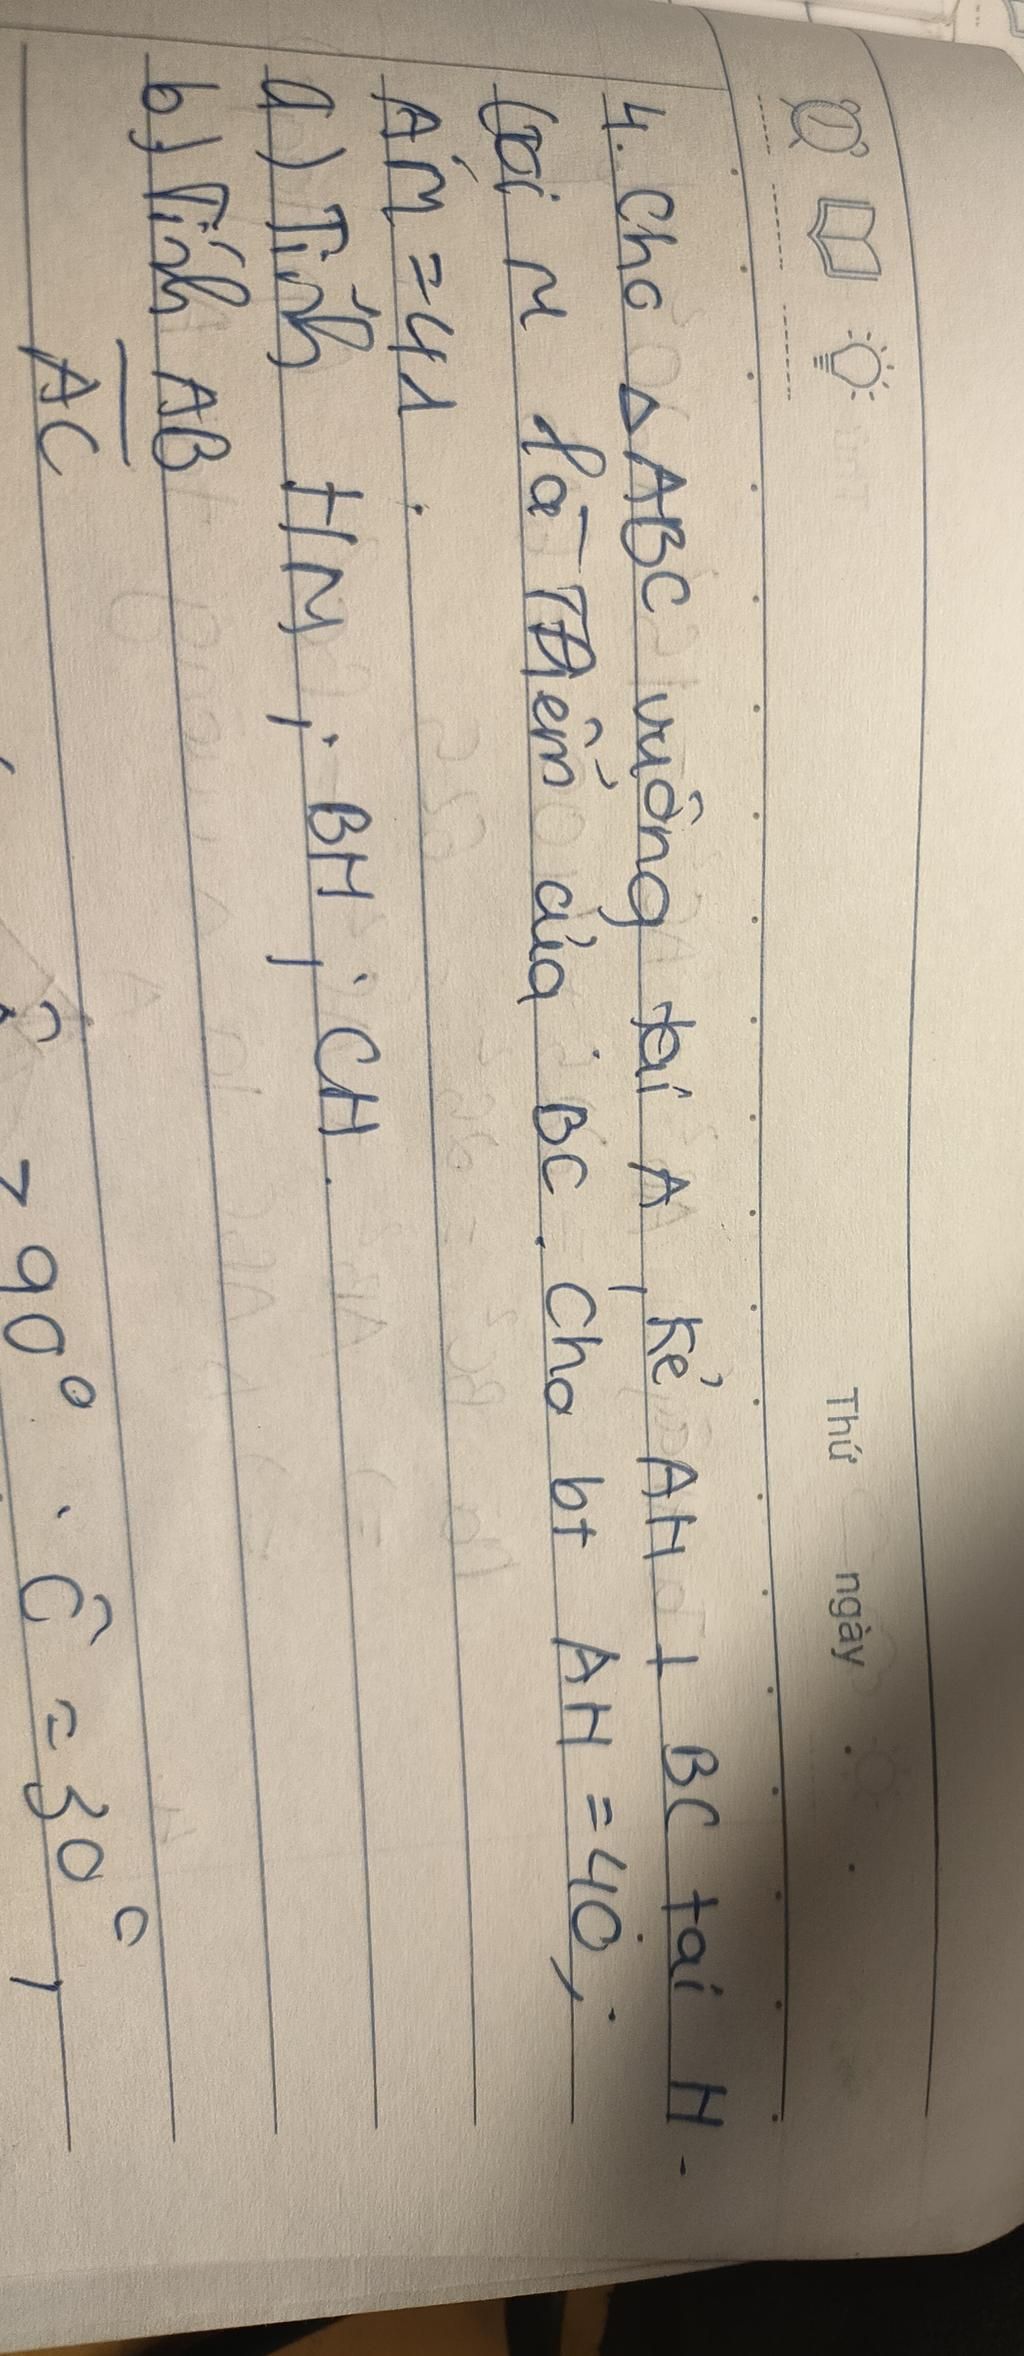 Thứ ngày
4. Cho △ABC vuông tại A, kẻ AH ⊥ BC tại H.
Gọi M là Điểm của BC. Cho bt AH = 40;
AM = 41.
a) Tính HM; BH; CH.
b) Tính AB
AC
= 90° . Ĉ = 30°